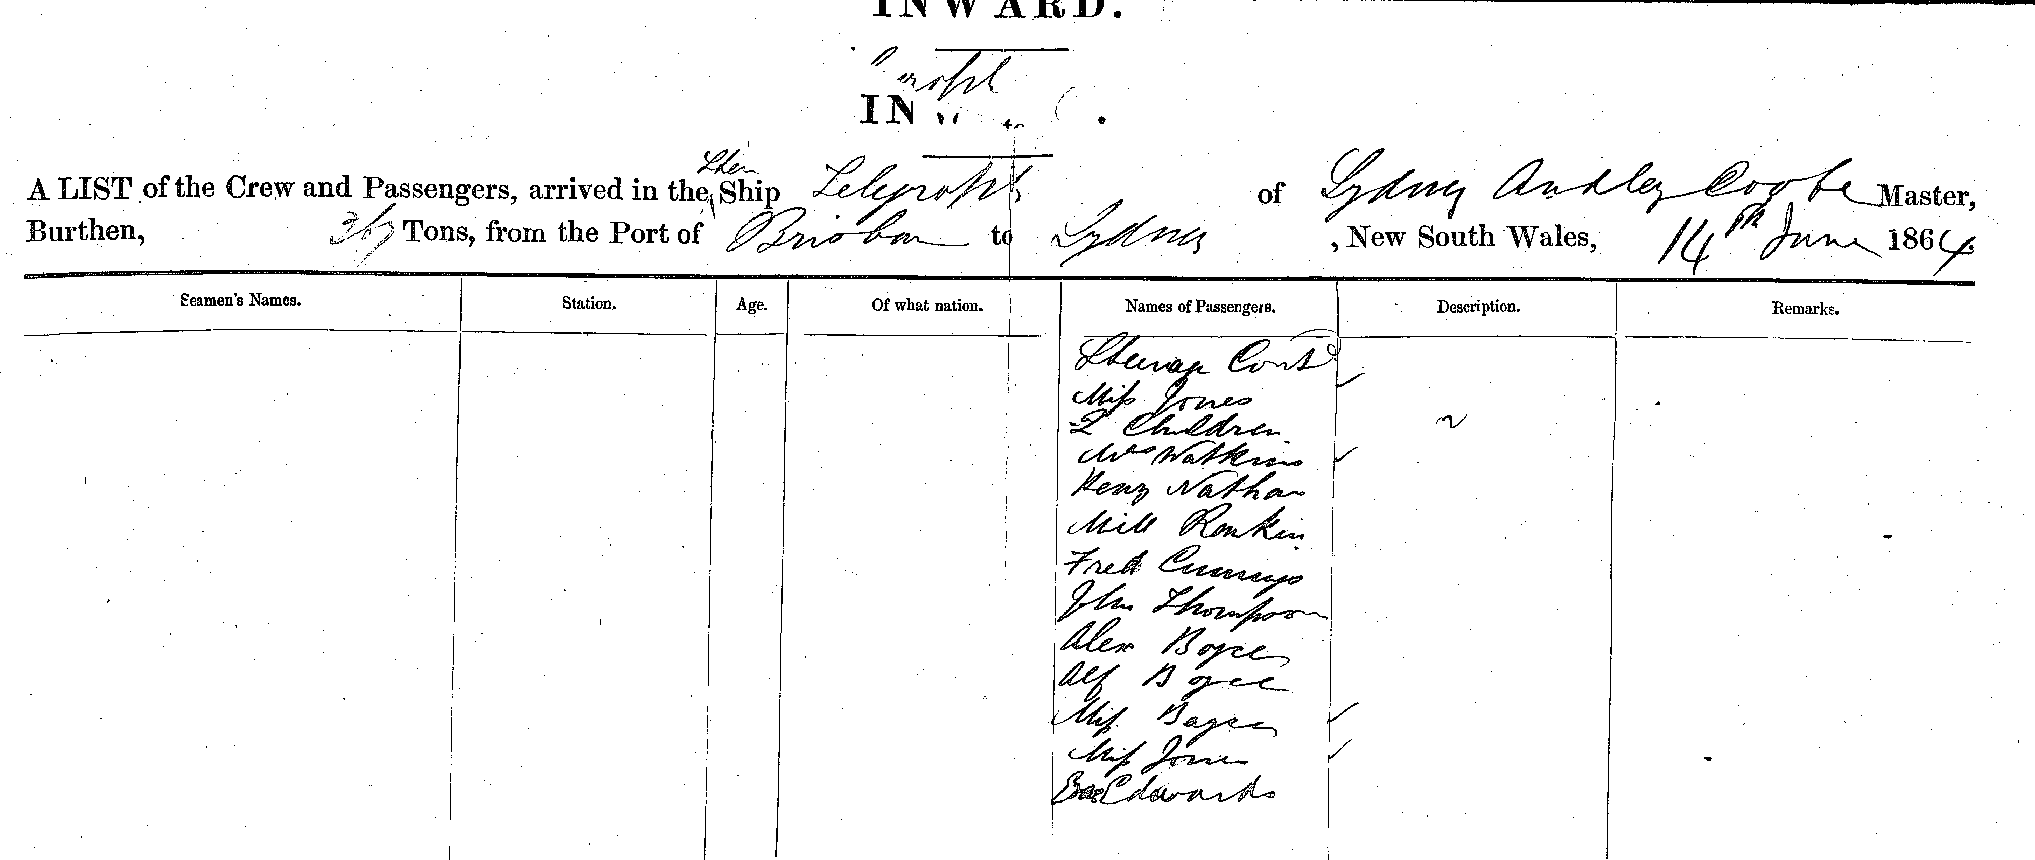 INWARD.
IN
A LIST of the Crew and Passengers, arrived in the Ship Telegraph of Sydney Audley Coote Master,
Burthen, 367 Tons, from the Port of Brisbane to Sydney, New South Wales, 14th June 1864
Seamen's Names. Station. Age. Of what nation. Names of Passengers. Description. Remarks.
Steerage Contd
Miss Jones
2 Children
Mrs Watkins
Henry Nathan
Mill Rankin
Fred Cummings
John Thompson
Alex Boyce
Alf Boyce
Miss Boyce
Miss Jones
Edwards